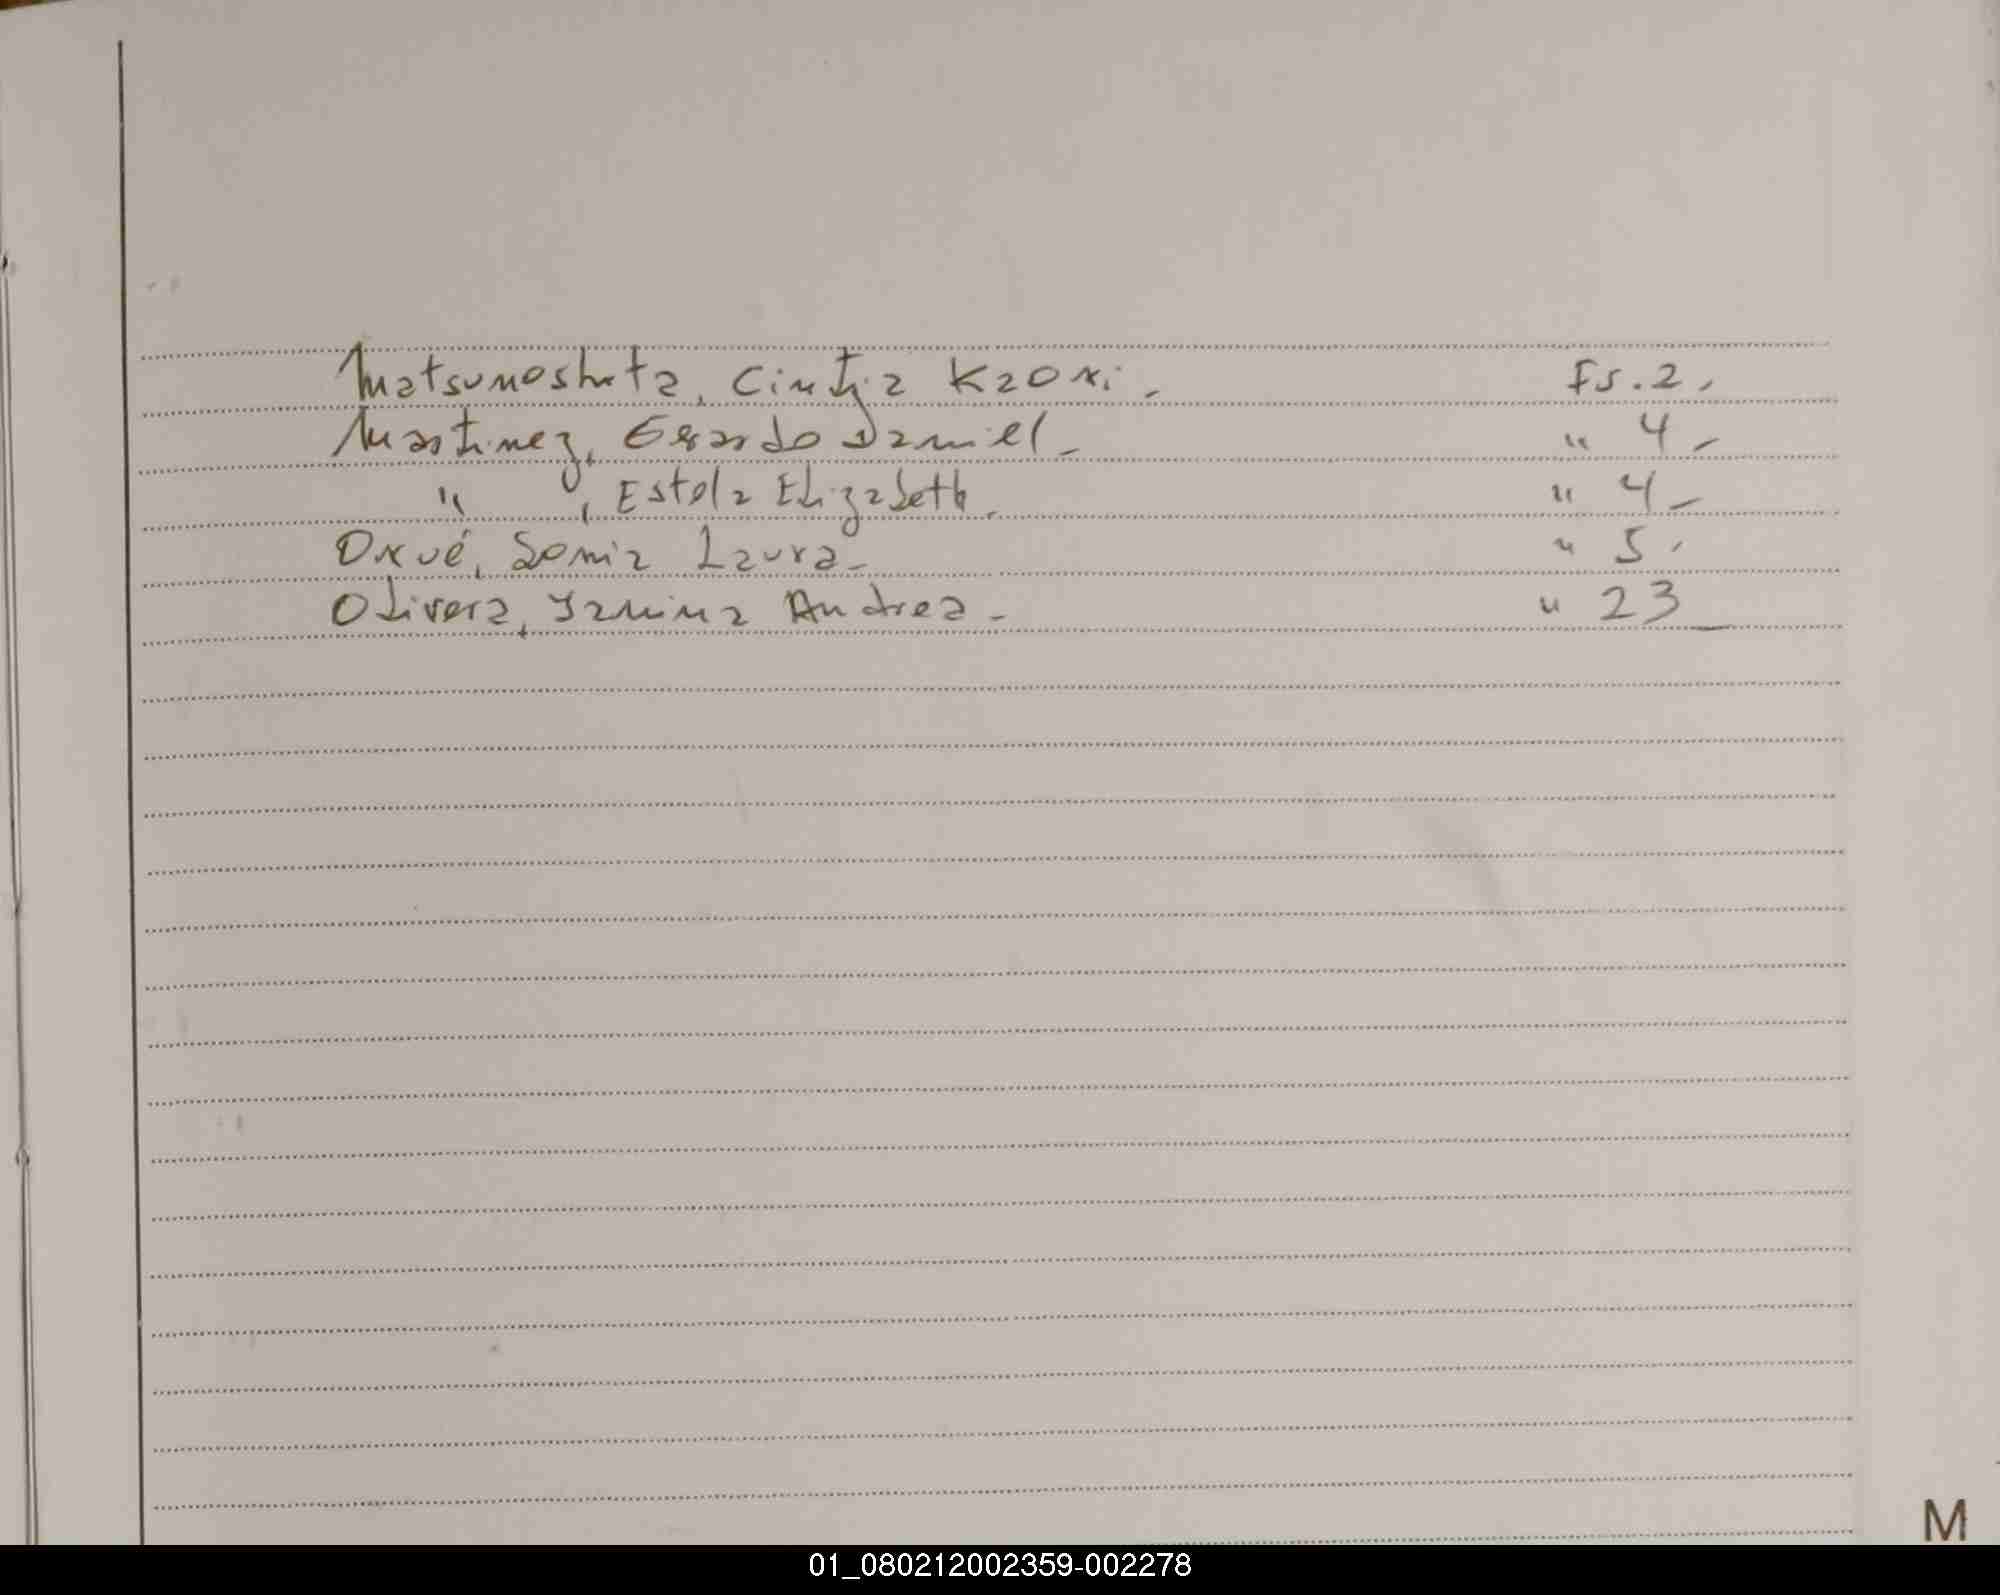 Matsumoshita, Cintia Kaori. Fs. 2.
Martinez, Gerardo Daniel _ " 4 _
" , Estela Elizabeth. " 4 _
Orué, Sonia Laura _ " 5.
Olivera, Yanina Andrea _ " 23 _
M
01_080212002359-002278